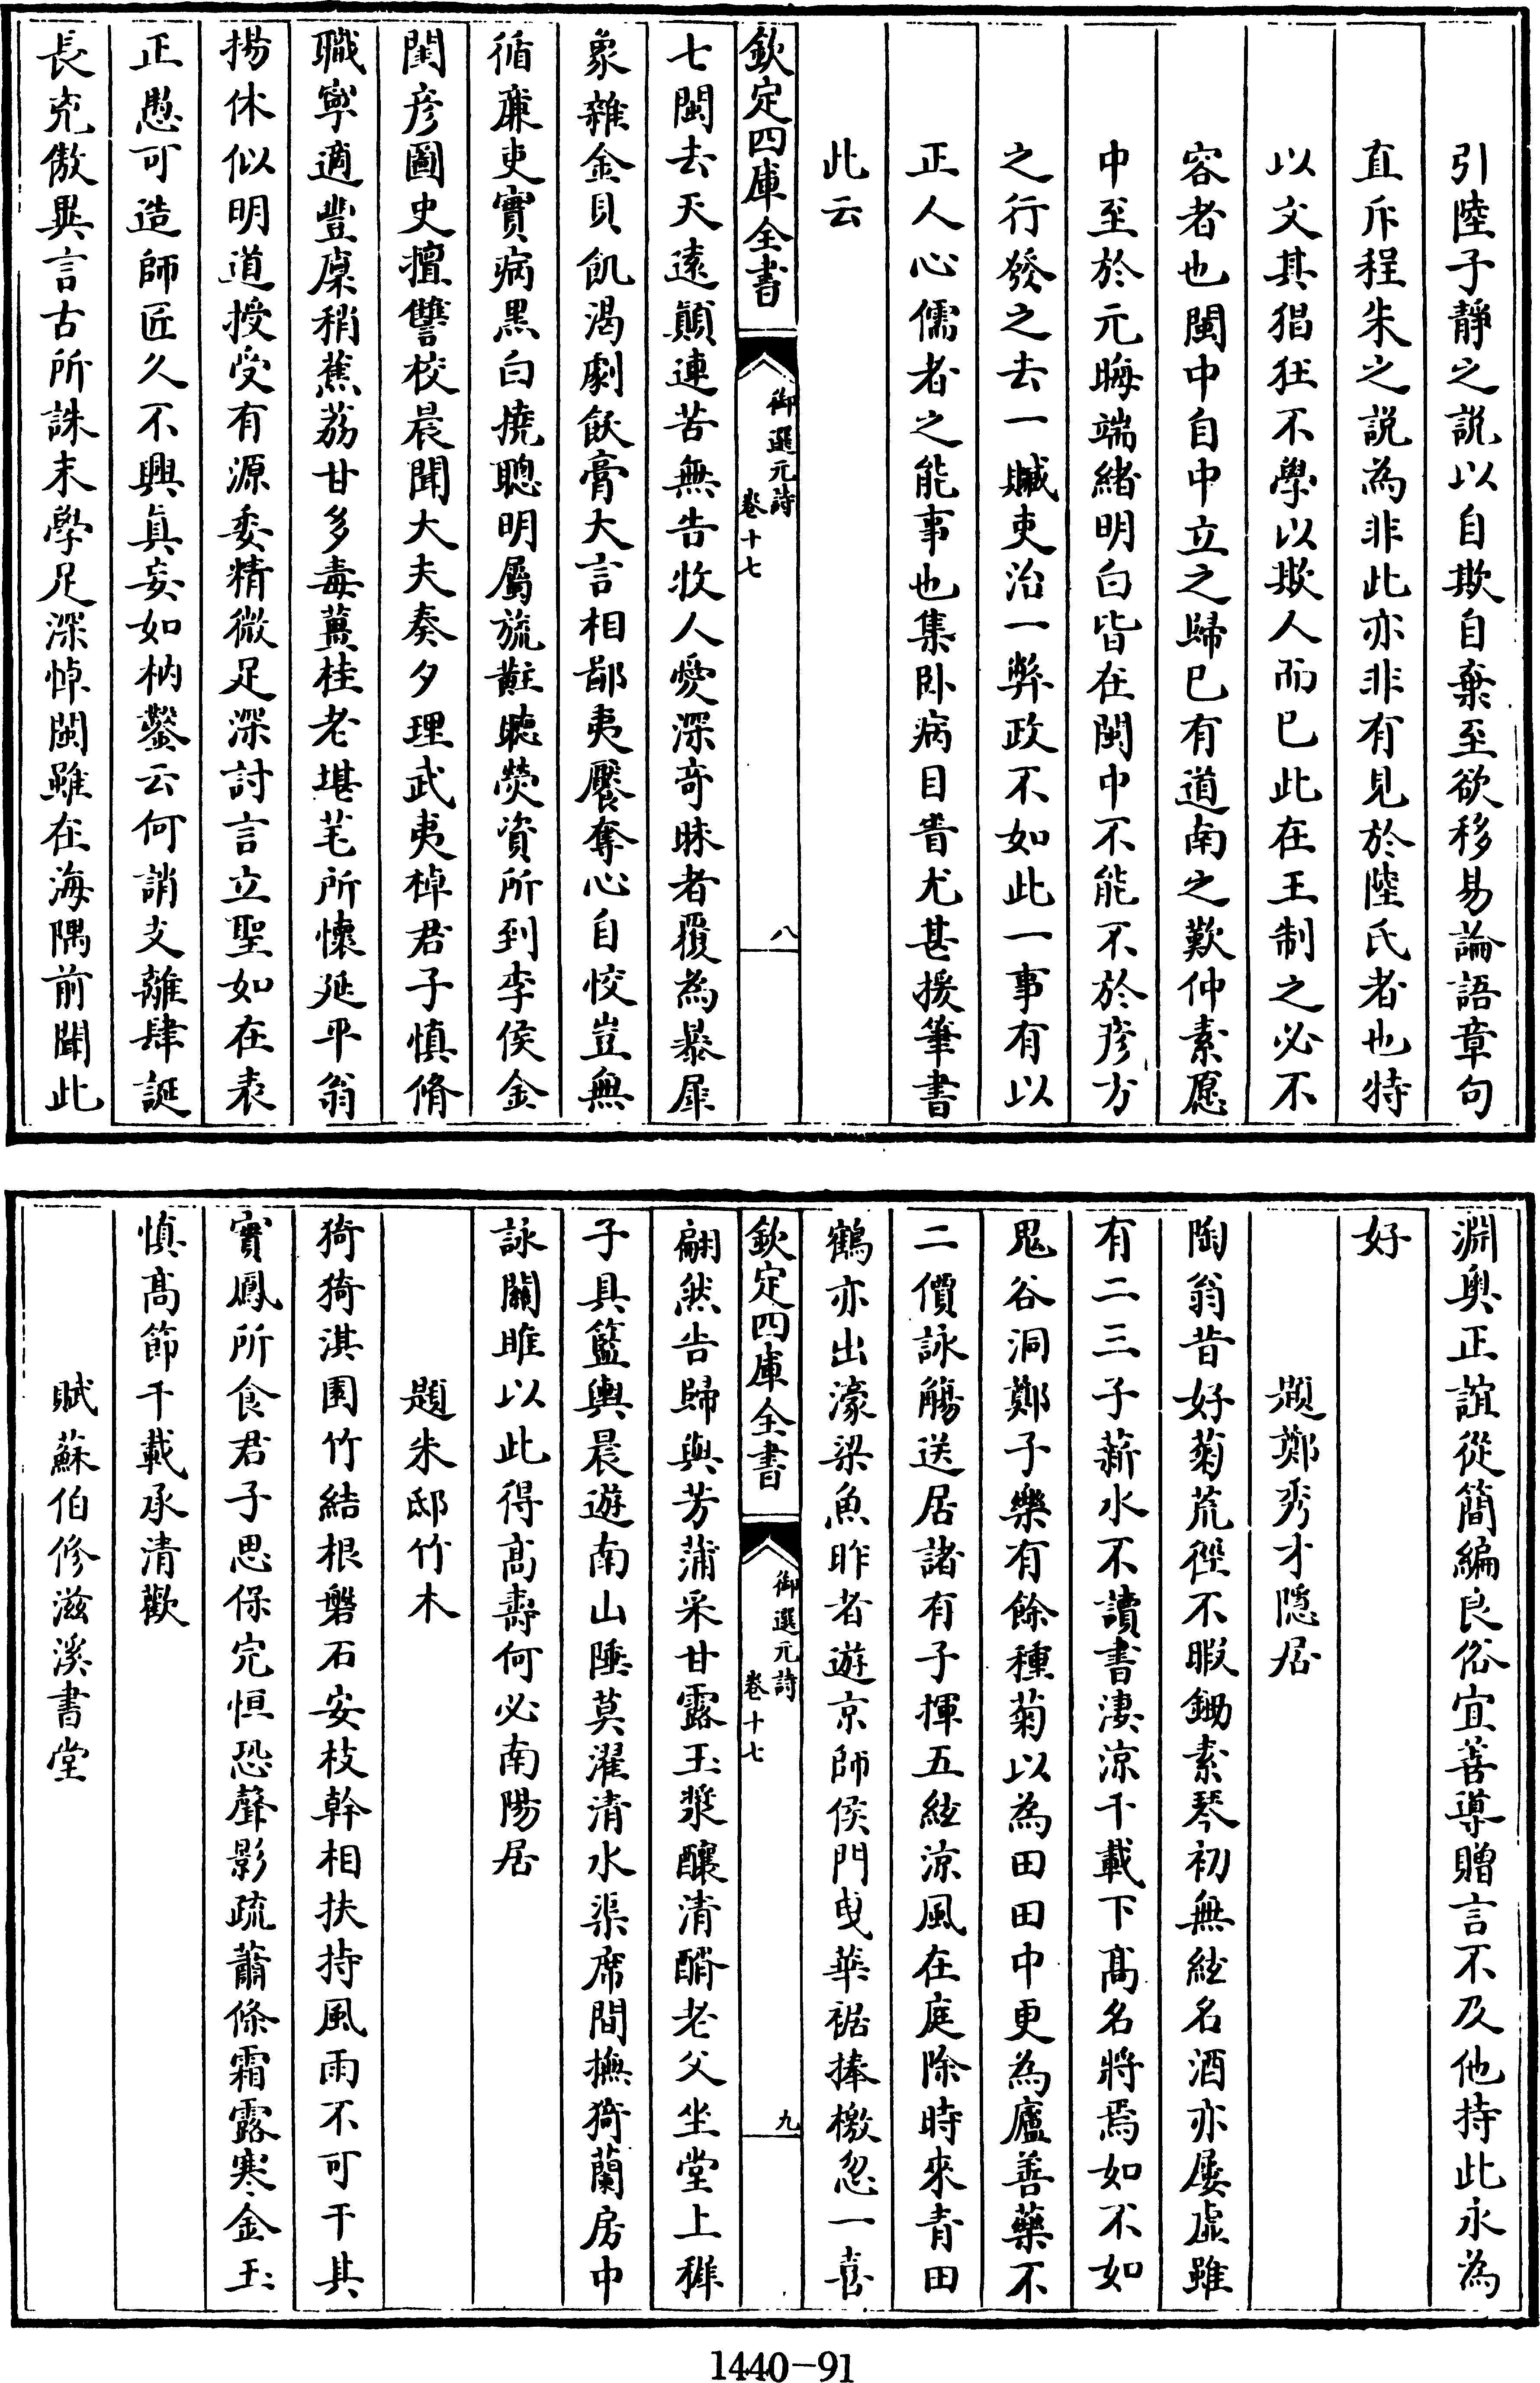 引陸子靜之説以自欺自棄至欲移易論語章句
直斥程朱之説為非此亦非有見於陸氏者也特
以文其猖狂不學以欺人而已此在王制之必不
容者也閩中自中立之歸已有道南之歎仲素愿
中至於元晦端緒明白皆在閩中不能不於彦方
之行發之去一贓吏治一弊政不如此一事有以
正人心儒者之能事也集卧病目眚尤甚援筆書
此云
欽定四庫全書
御選元詩
卷十七
八
七閩去天遠顛連苦無告牧人愛深竒昧者覆為暴犀
象雜金貝飢渴劇飫膏大言相鄙夷饜奪心自恔豈無
循廉吏實病黒白撓聰明屬旒黈聽熒資所到李侯金
閨彦圖史擅讐校晨聞大夫奏夕理武夷棹君子慎脩
職寧適豐廩稍蕉荔甘多毒薑桂老堪芼所懷延平翁
揚休似明道授受有源委精微足深討言立聖如在表
正愚可造師匠久不興真妄如枘鑿云何誚支離肆誕
長充傲異言古所誅末學足深悼閩雖在海隅前聞此
淵奥正誼從簡編良俗宜善導贈言不及他持此永為
好
題鄭秀才隠居
陶翁昔好菊荒徑不暇鋤素琴初無絃名酒亦屢虚雖
有二三子薪水不讀書淒涼千載下髙名將焉如不如
鬼谷洞鄭子樂有餘種菊以為田田中更為廬善藥不
二價詠觴送居諸有子揮五絃涼風在庭除時來青田
鶴亦出濠梁魚昨者遊京師侯門曳華裾捧檄忽一喜
欽定四庫全書
御選元詩
卷十七
九
翩然告歸與芳蒲采甘露玉漿釀清醑老父坐堂上稺
子具籃輿晨遊南山陲莫濯清水渠席間撫猗蘭房中
詠關雎以此得髙壽何必南陽居
題朱邸竹木
猗猗淇園竹結根磐石安枝幹相扶持風雨不可干其
實鳳所食君子思保完恒恐聲影疏蕭條霜露寒金玉
慎髙節千載承清歡
賦蘇伯修滋溪書堂
1440-91